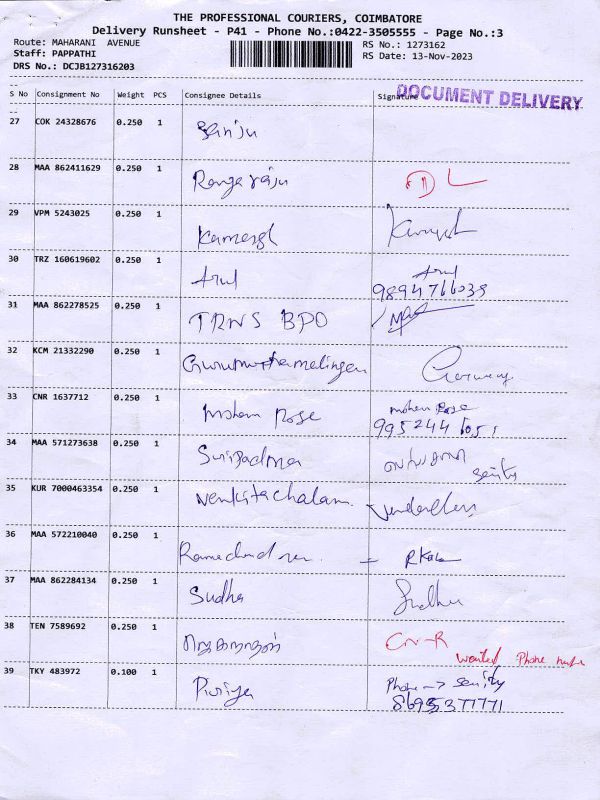 THE PROFESSIONAL COURIERS, COIMBATORE
Delivery Runsheet - P41 - Phone No.:0422-3505555 - Page No.:3
Route: MAHARANI AVENUE RS No.: 1273162
Staff: PAPPATHI RS Date: 13-Nov-2023
DRS No.: DCJB127316203
S No Consignment No Weight PCS Consignee Details Signature DOCUMENT DELIVERY
27 COK 24328676 0.250 1 Sanju
28 MAA 862411629 0.250 1 Rangaraju
29 VPM 5243025 0.250 1 Kamesh
30 TRZ 160619602 0.250 1 Arul Arul
9894766039
31 MAA 862278525 0.250 1 TRNS BPO
32 KCM 21332290 0.250 1
33 CNR 1637712 0.250 1 Mohan Rose Mohan Rose
995244 6051
34 MAA 571273638 0.250 1
35 KUR 7000463354 0.250 1 Venkitachalam
36 MAA 572210040 0.250 1
37 MAA 862284134 0.250 1 Sudha Sudha
38 TEN 7589692 0.250 1
wanted Phone
39 TKY 483972 0.100 1 Phone →
8695377771